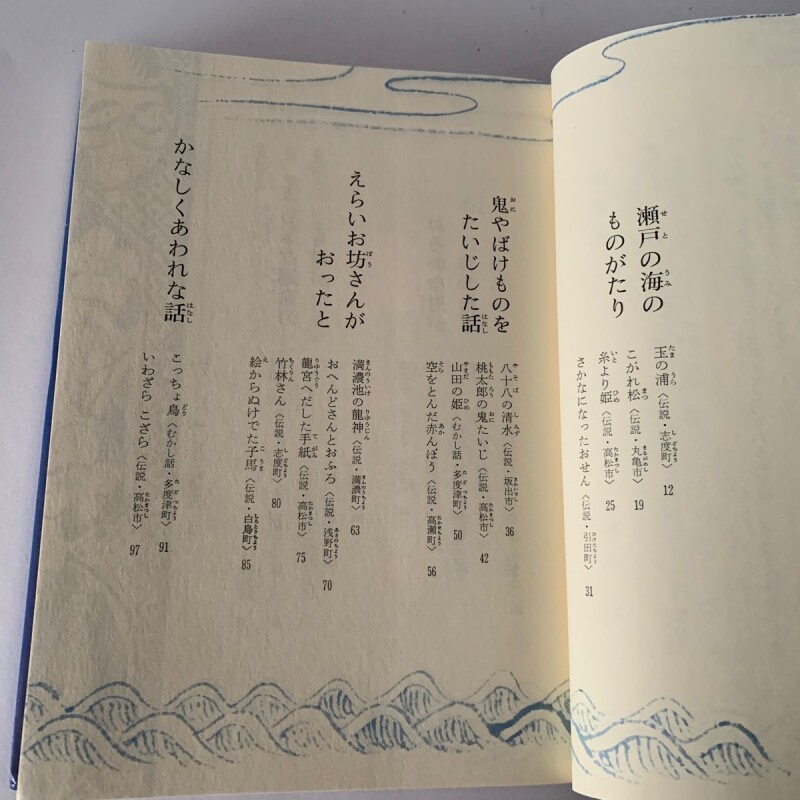 瀬戸の海の
ものがたり
玉の浦〈伝説・志度町〉 12
こがれ松〈伝説・丸亀市〉 19
糸より姫〈伝説・高松市〉 25
さかなになったおせん〈伝説・引田町〉 31
鬼やばけものを
たいじした話
八十八の清水〈伝説・坂出市〉 36
桃太郎の鬼たいじ〈伝説・高松市〉 42
山田の姫〈むかし話・多度津町〉 50
空をとんだ赤んぼう〈伝説・高瀬町〉 56
えらいお坊さんが
おったと
満濃池の龍神〈伝説・満濃町〉 63
おへんどさんとおふろ〈伝説・浅野町〉 70
龍宮へだした手紙〈伝説・高松市〉 75
竹林さん〈伝説・志度町〉 80
絵からぬけでた子馬〈伝説・白鳥町〉 85
かなしくあわれな話
こっちょ鳥〈むかし話・多度津町〉 91
いわざら こざら〈伝説・高松市〉 97